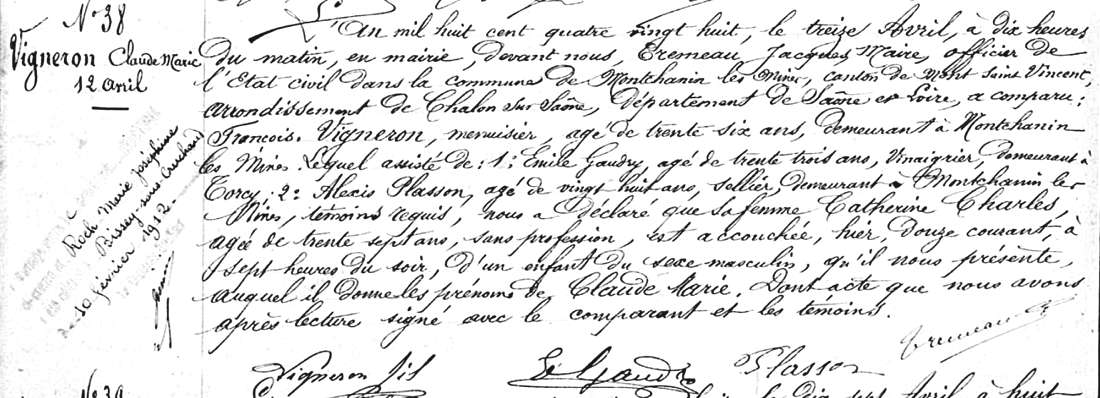 N° 38
Vigneron Claude Marie
12 avril
Roch Marie Joséphine
Bissey-sous-Cruchaud
10 février 1912
L'An mil huit cent quatre vingt huit, le treize Avril, à dix heures
du matin, en mairie, devant nous, Tremeau, Jacques Maire, officier de
l'Etat civil dans la commune de Montchanin les Mines, canton de Mont Saint Vincent,
arrondissement de Chalon sur Saône, Département de Saône et Loire, a comparu:
François Vigneron, menuisier, agé de trente six ans, demeurant à Montchanin
les Mines. Lequel assisté de: 1: Emile Gaudry, agé de trente trois ans, Vinaigrier, demeurant à
Torcy. 2: Alexis Plasson, agé de vingt huit ans, sellier, demeurant à Montchanin les
Mines, témoins requis, nous a déclaré que sa femme Catherine Charles,
agée de trente sept ans, sans profession, est accouchée, hier, douze courant, à
sept heures du soir, d'un enfant du sexe masculin, qu'il nous présente,
auquel il donne les prénoms de Claude Marie. Dont acte que nous avons
après lecture signé avec le comparant et les témoins.
Tremeau
Vigneron fil Gaudry Plasson
N° 39
dix sept Avril à huit